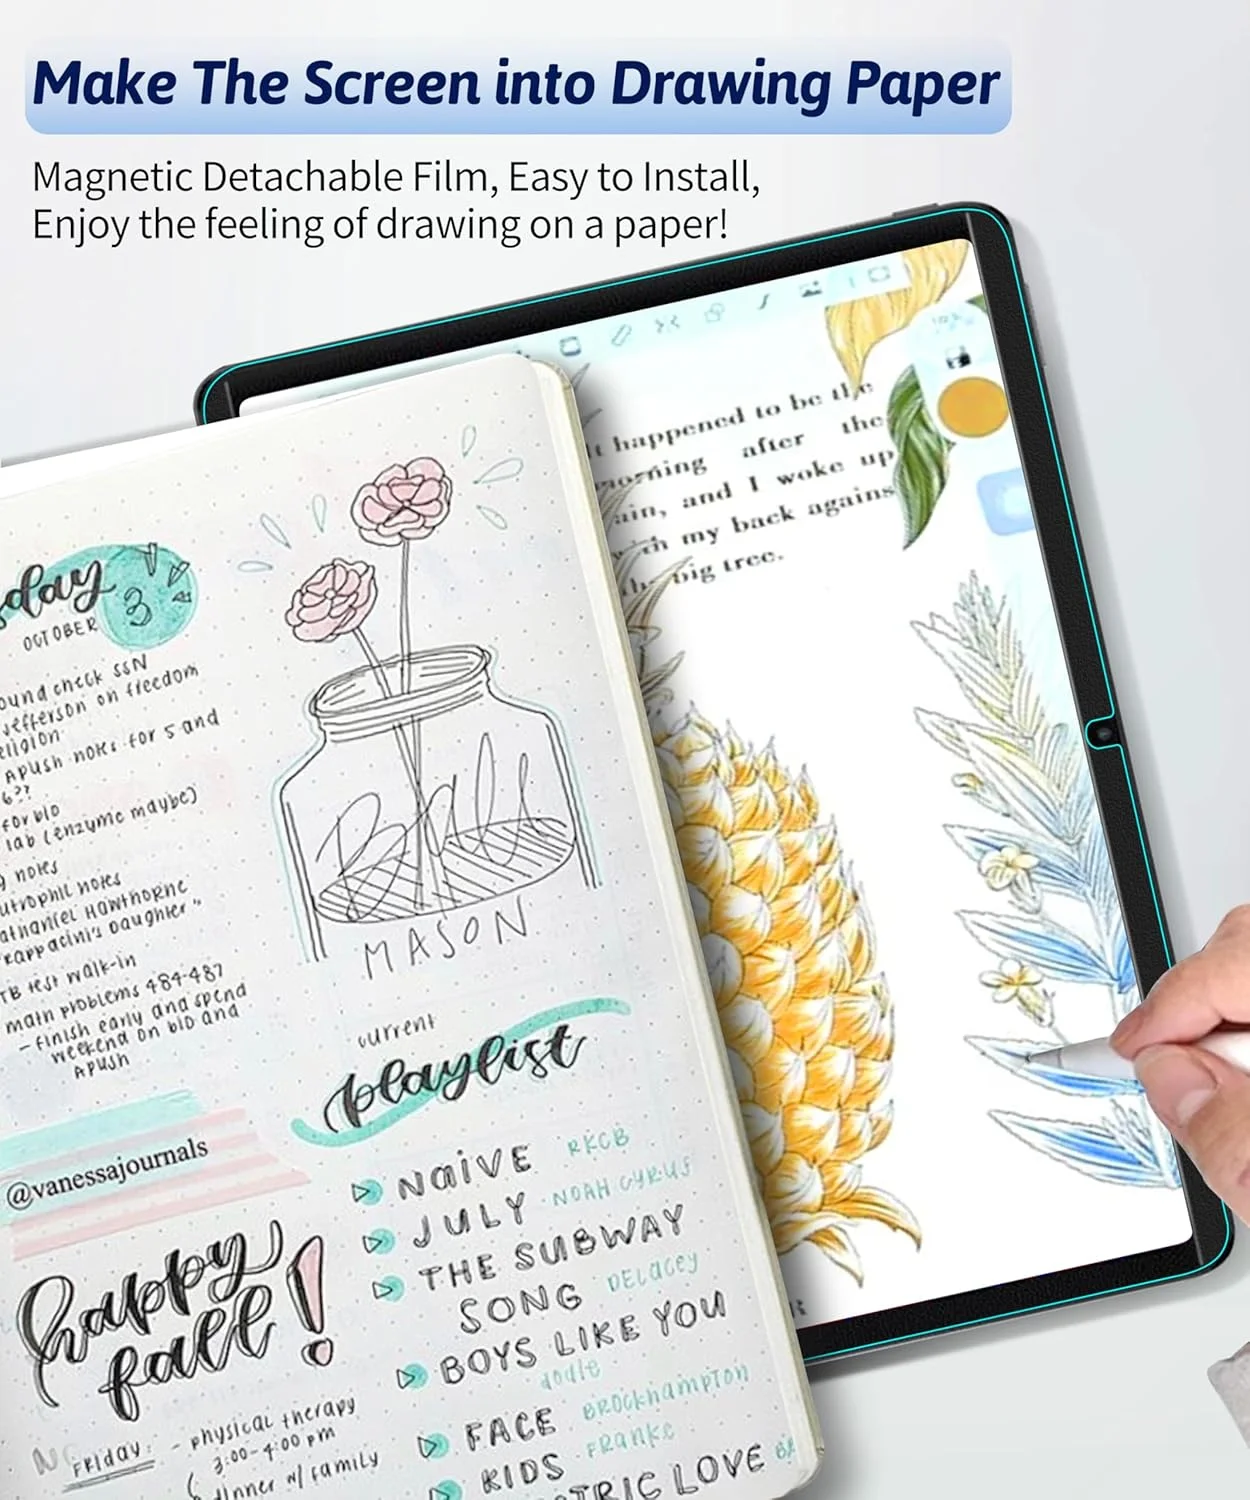 Make The Screen into Drawing Paper
Magnetic Detachable Film, Easy to Install,
Enjoy the feeling of drawing on a paper!
happened to be the
morning after the
and I woke up
my back agains
big tree.
day
3
OCTOBER
check SSN
Jefferson on freedom
APUSH notes for 5 and
6??
for bio
lab (enzyme maybe)
notes
notes
Hawthorne
Daughter"
TB test walk-in
math problems 484-487
- finish early and spend
weekend on bio and
APUSH
MASON
current
playlist
@vanessajournals
NAIVE RKCB
JULY · NOAH CYRUS
THE SUBWAY
SONG DELacey
BOYS LIKE YOU
dodie
FACE BROCKHAMPTON
KIDS · FRANKE
LOVE
happy
fall!
FRIDAY: - physical therapy
3:00-4:00 pm
dinner w/ family